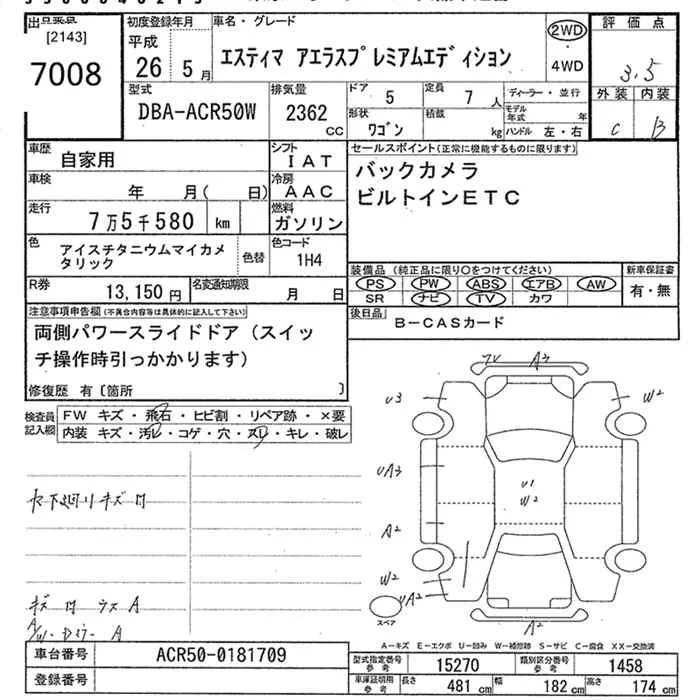 出品票
[2143]
7008
初度登録年月
平成
26 5月
車名・グレード
エスティマ アエラスプレミアムエディション
2WD
・
4WD
評価点
3.5
外装 内装
C B
型式
DBA-ACR50W
排気量
2362
CC
ドア
5
定員
7人
形状
ワゴン
積載
kg
ディーラー・並行
モデル年式 年
ハンドル 左・右
車歴
自家用
シフト
IAT
車検
年 月( 日)
冷房
AAC
走行
7万5千580 km
燃料
ガソリン
色
アイスチタニウムマイカメ
タリック
色替
色コード
1H4
R券
13,150円
名変通知期限
月 日
セールスポイント(正常に機能するものに限ります)
バックカメラ
ビルトインETC
装備品 (純正品に限り○をつけてください)
PS PW ABS エアB AW
SR ナビ TV カワ
新車保証書
有・無
後日品
B-CASカード
注意事項申告欄(不具合内容等は具体的に記入して下さい)
両側パワースライドドア(スイッ
チ操作時引っかかります)
修復歴 有〔箇所 〕
検査員
記入欄
FW キズ・飛石・ヒビ割・リペア跡・×要
内装 キズ・汚レ・コゲ・穴・スレ・キレ・破レ
下廻りキズ
キズ
A
A
U3
A3
W2
UA3
U1
W2
A2
W2
UA2
A2
スペア
A-キズ E-エクボ U-凹み W-補修跡 S-サビ C-腐食 XX-交換済
車台番号
ACR50-0181709
登録番号
型式指定番号
参考
15270
類別区分番号
参考
1458
車庫証明用
参考
長さ
481 cm
幅
182 cm
高さ
174 cm